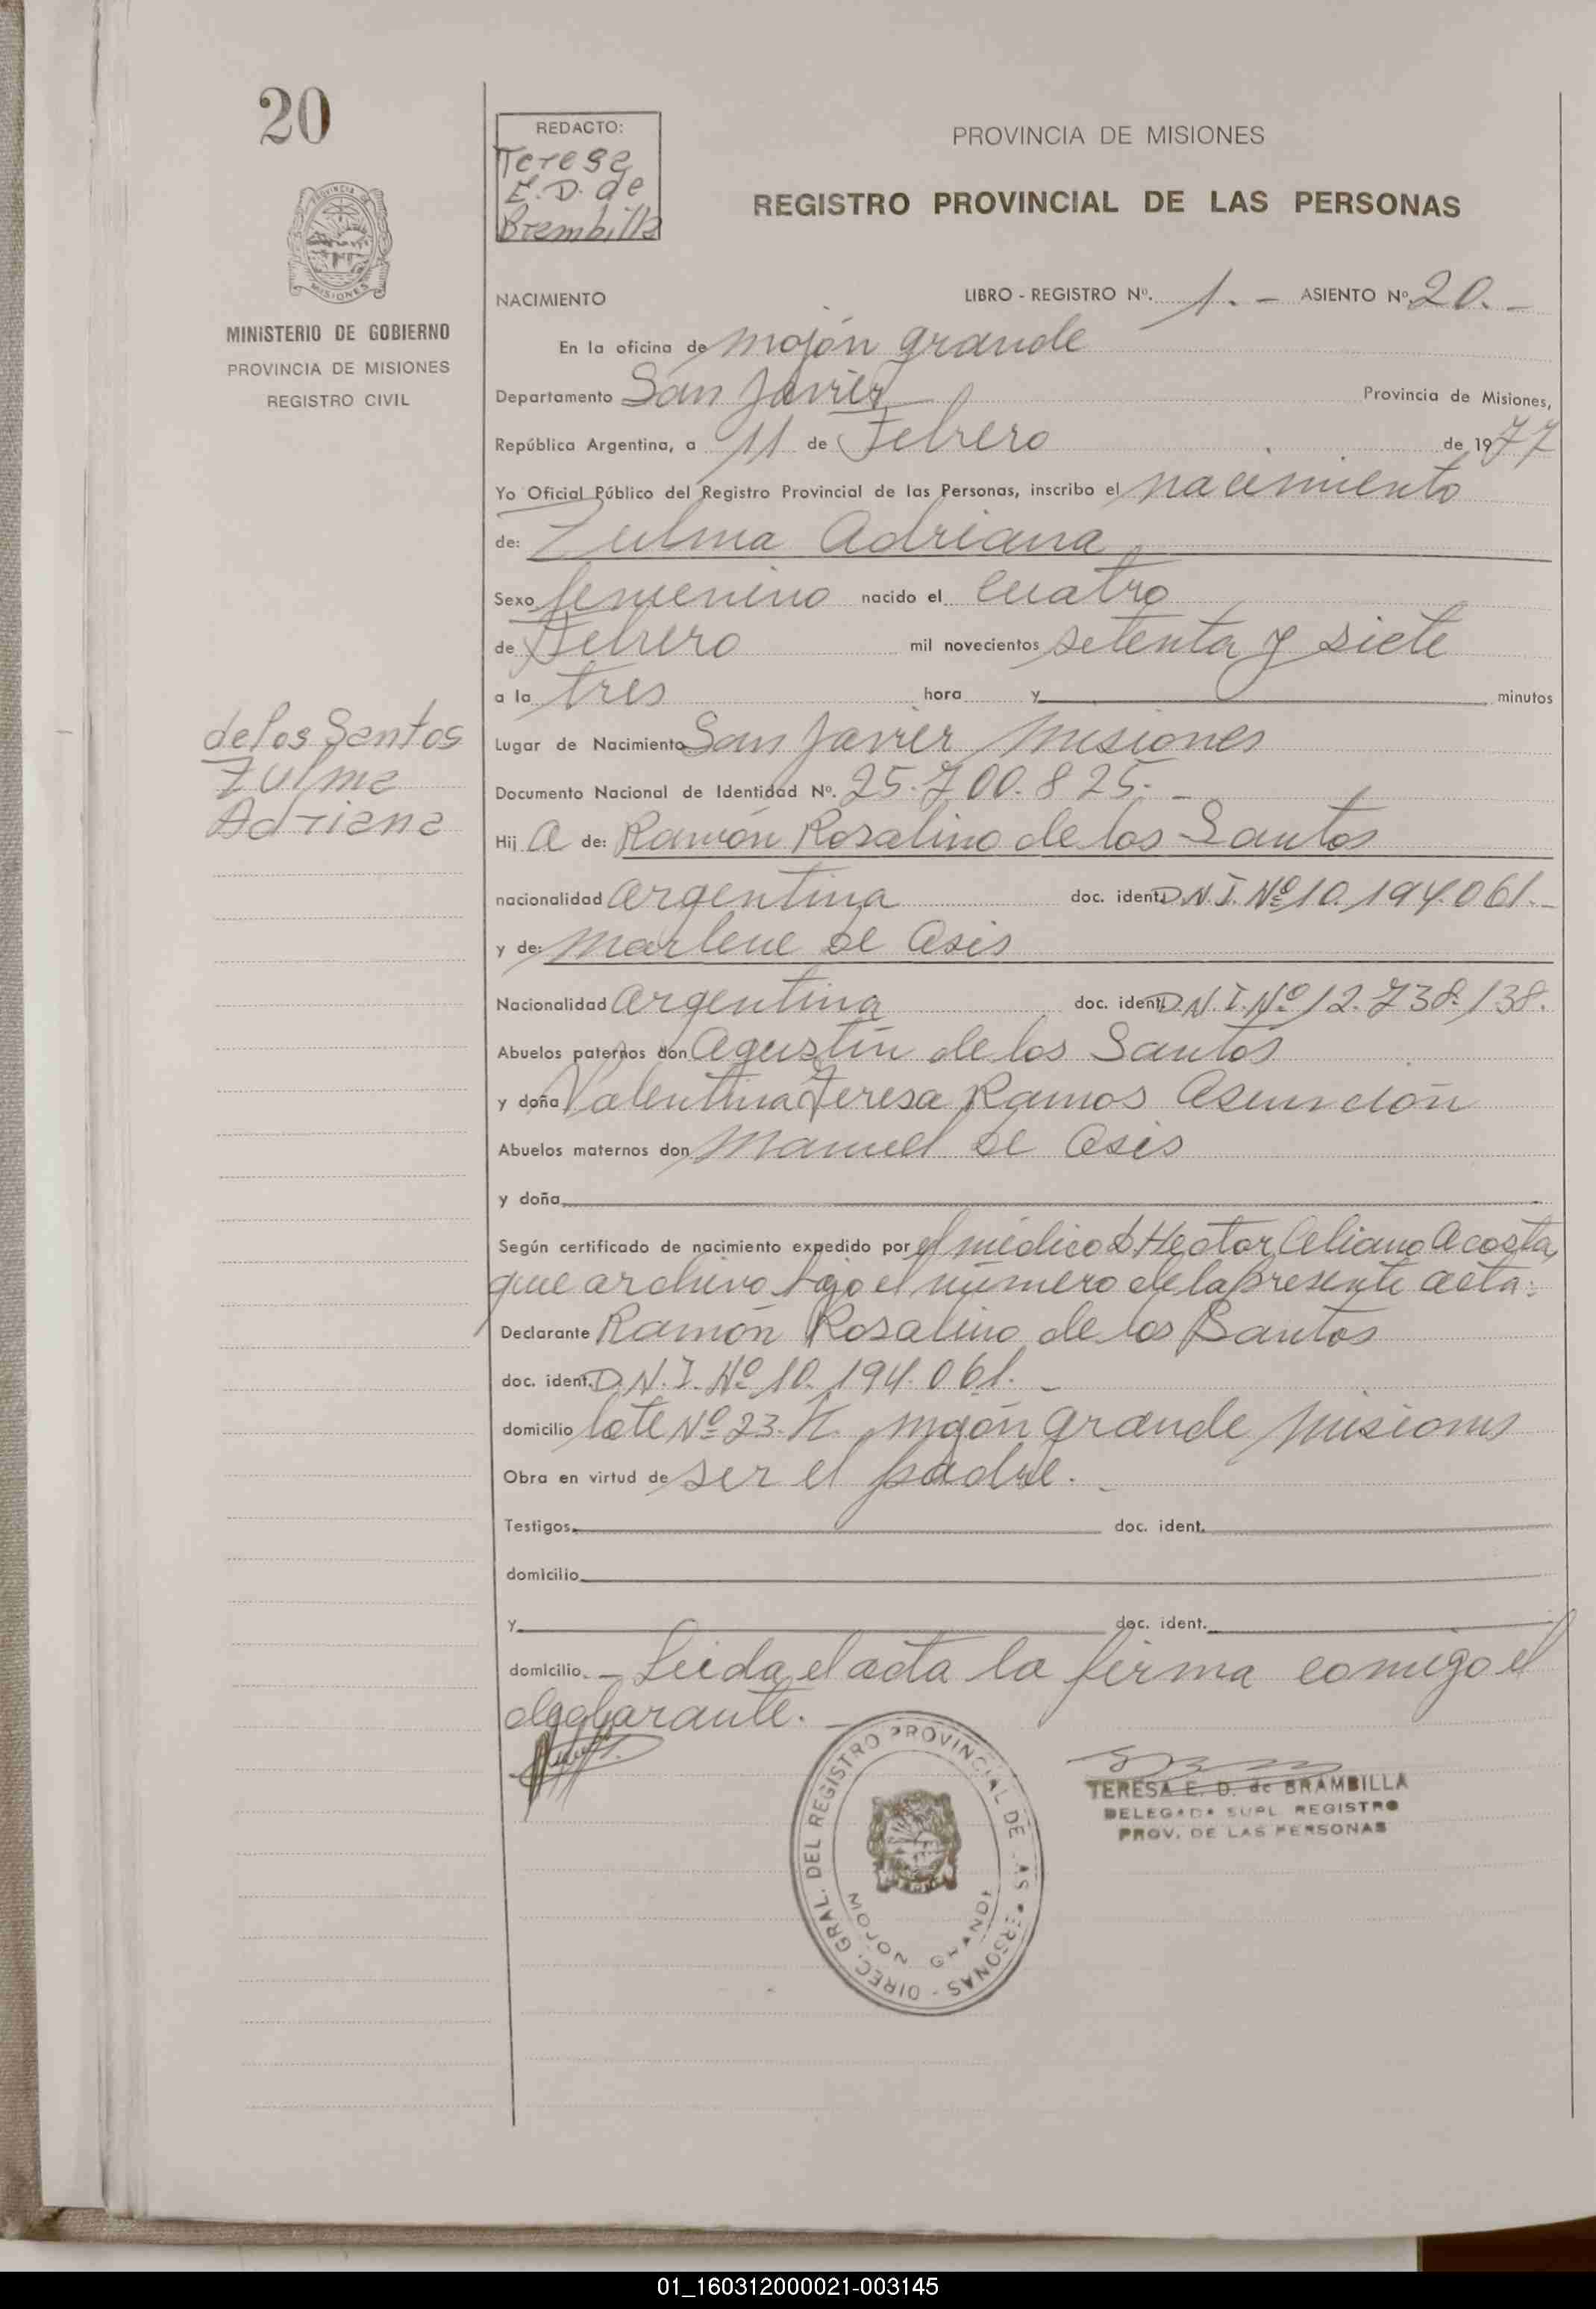 20
PROVINCIA
MISIONES
MINISTERIO DE GOBIERNO
PROVINCIA DE MISIONES
REGISTRO CIVIL
de los Santos
Zulma
Adriana
REDACTO:
Teresa
E. D. de
Brambilla
PROVINCIA DE MISIONES
REGISTRO PROVINCIAL DE LAS PERSONAS
NACIMIENTO LIBRO - REGISTRO Nº. 1. - ASIENTO Nº. 20. -
En la oficina de Mojón grande
Departamento San Javier Provincia de Misiones,
República Argentina, a 11 de Febrero de 1977
Yo Oficial Público del Registro Provincial de las Personas, inscribo el nacimiento
de: Zulma Adriana
Sexo femenino nacido el cuatro
de Febrero mil novecientos setenta y siete
a la tres hora y minutos
Lugar de Nacimiento San Javier Misiones
Documento Nacional de Identidad Nº. 25.700.825. -
Hij a de: Ramón Rosalino de los Santos
nacionalidad argentina doc. ident. D.N.I. Nº 10.194.061. -
y de: Marlene de Asis
Nacionalidad argentina doc. ident. D.N.I. Nº 12.738.138.
Abuelos paternos don Agustín de los Santos
y doña Valentina Teresa Ramos Asunción
Abuelos maternos don Manuel de Asis
y doña
Según certificado de nacimiento expedido por el médico D Hector Celiano Acosta,
que archivo bajo el número de la presente acta:
Declarante Ramón Rosalino de los Santos
doc. ident. D.N.I. Nº 10.194.061. -
domicilio lote Nº 23. K. Mojón grande Misiones
Obra en virtud de ser el padre. -
Testigos. doc. ident.
domicilio
y doc. ident.
domicilio. - Leida el acta la firma comigo el
deglarante. -
DIREC. GRAL. DEL REGISTRO PROVINCIAL DE LAS PERSONAS -
MOJON GRANDE
TERESA E. D. de BRAMBILLA
DELEGADA SUPL. REGISTRO
PROV. DE LAS PERSONAS
01_160312000021-003145